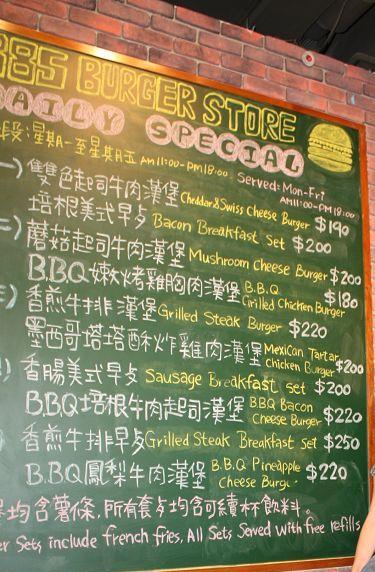 885 BURGER STORE
DAILY SPECIAL
段:星期一至星期五 AM11:00-PM18:00 Served: Mon-Fri
AM11:00-PM18:00
一) 雙色起司牛肉漢堡 Cheddar & Swiss Cheese Burger $190
培根美式早歺 Bacon Breakfast Set $200
二) 蘑菇起司牛肉漢堡 Mushroom Cheese Burger $200
B.B.Q嫩烤雞胸肉漢堡 B.B.Q Grilled Chicken Burger $180
香煎牛排漢堡 Grilled Steak Burger $220
墨西哥塔塔酥炸雞肉漢堡 Mexican Tartar Chicken Burger $200
香腸美式早歺 Sausage Breakfast set $200
B.B.Q培根牛肉起司漢堡 BBQ Bacon Cheese Burger $220
香煎牛排早歺 Grilled Steak Breakfast Set $250
B.B.Q鳳梨牛肉漢堡 B.B.Q Pineapple Cheese Burge $220
均含薯條,所有套歺均含可續杯飲料。
er Sets include french fries, All Sets Served with free refills